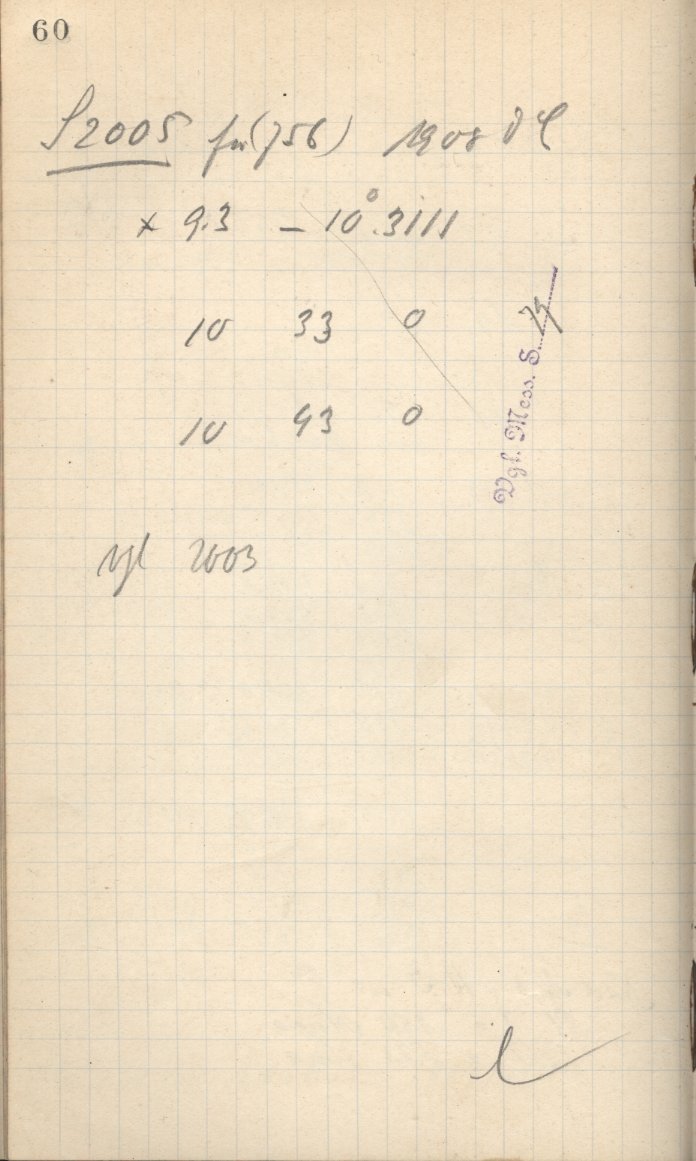 60
S2005 für (756) 1908 DC
× 9.3 – 10°.3111
10 33 0
10 43 0
Vgl. Mess. S.
vgl 2003